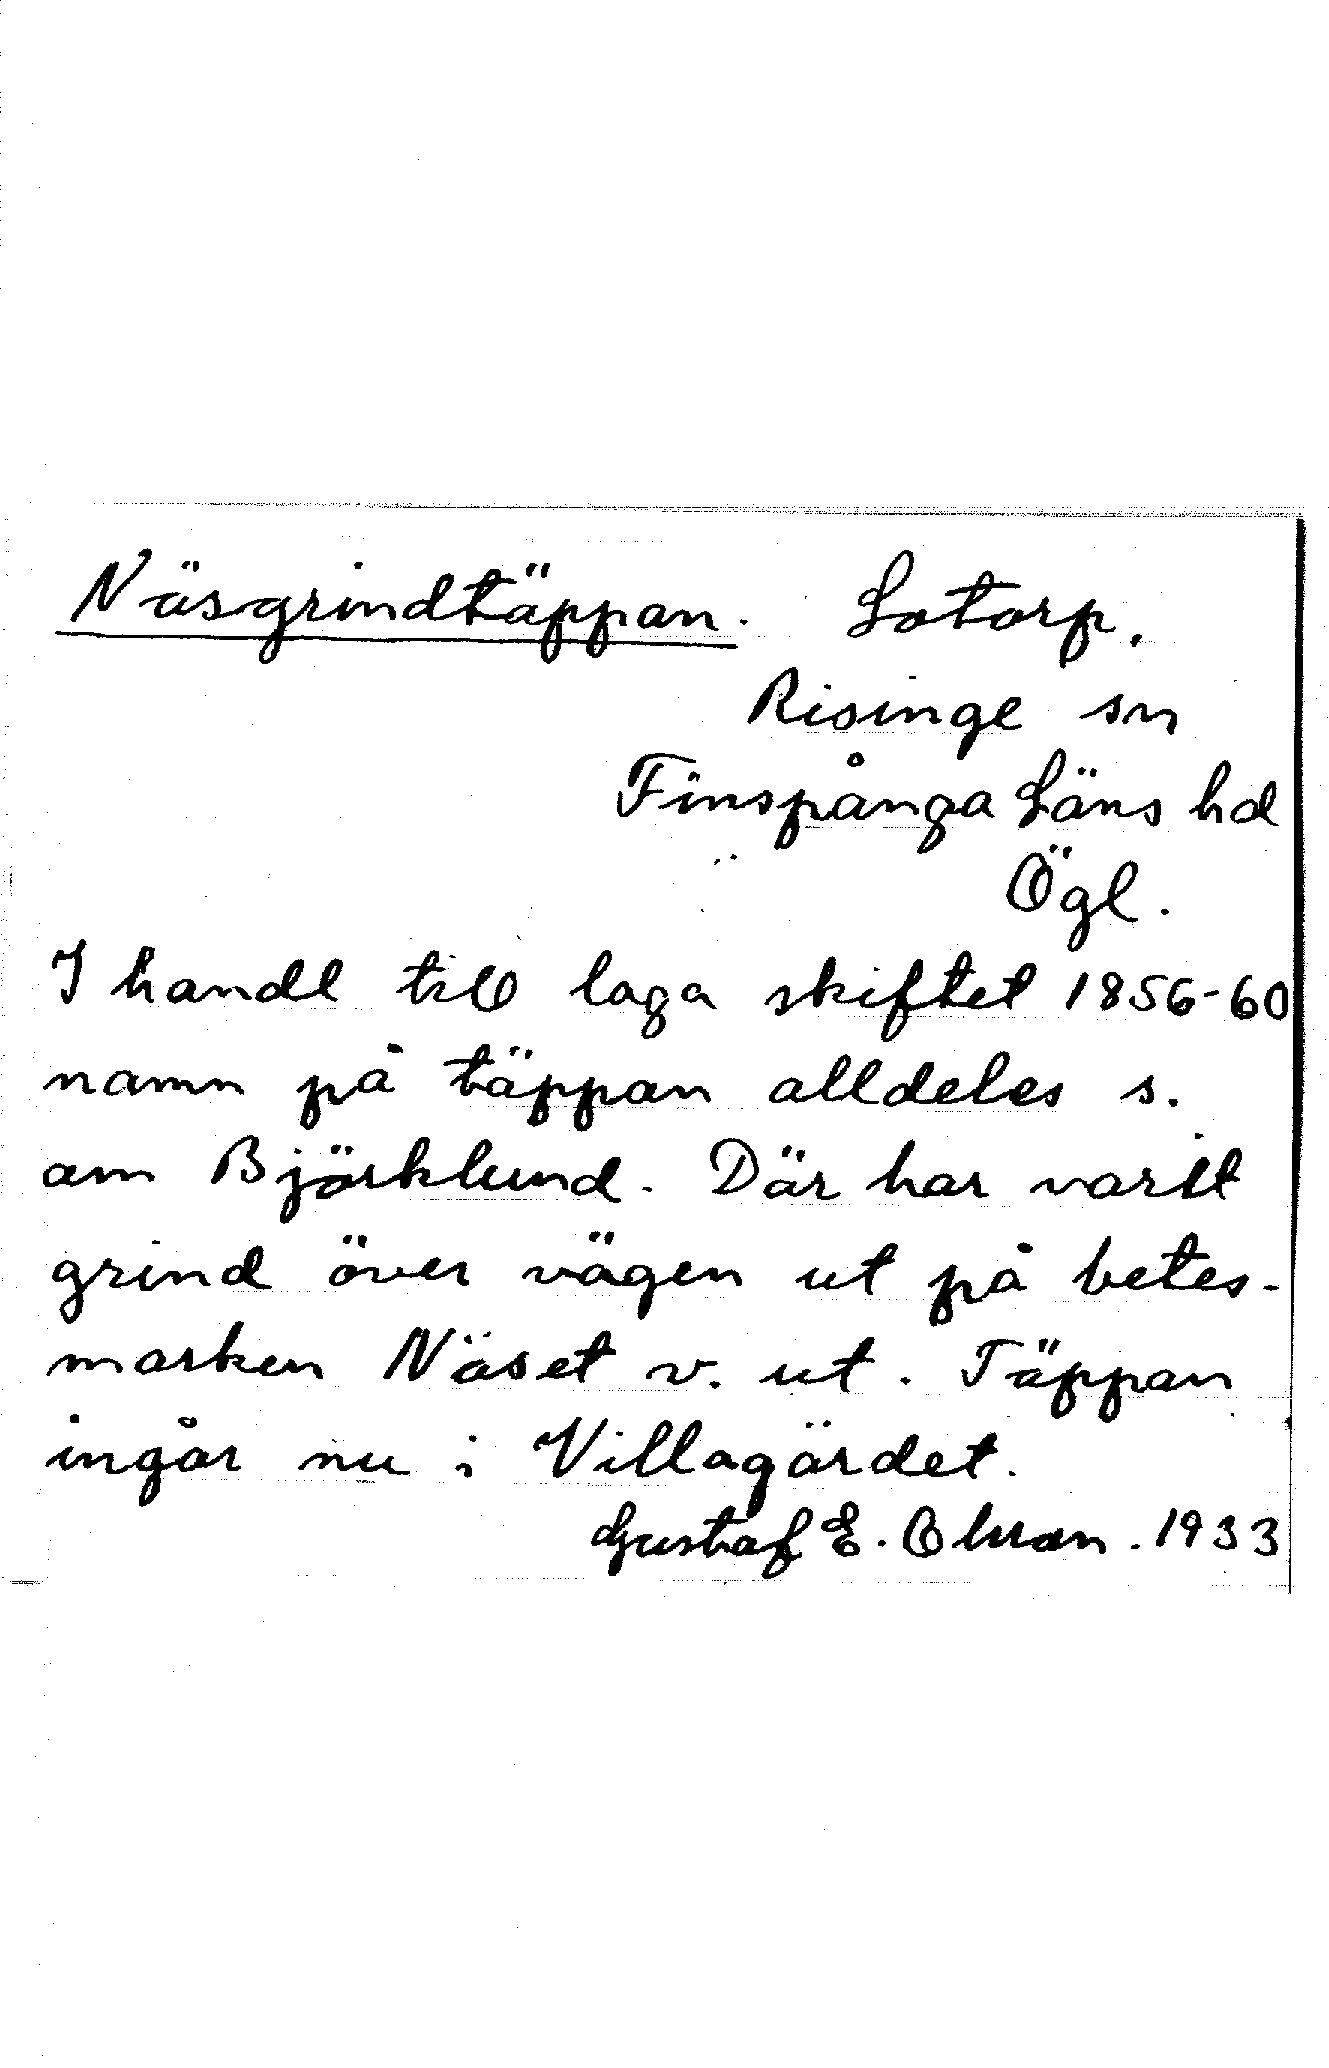 Näsgrindtäppan. Lotorp.
Risinge sn
Finspånga Läns hd
Ögl.
I handl till laga skiftet 1856-60
namn på täppan alldeles s.
om Björklund. Där har varit
grind över vägen ut på betes-
marken Näset v. ut. Täppan
ingår nu i Villagärdet.
Gustaf E. Olsson. 1933